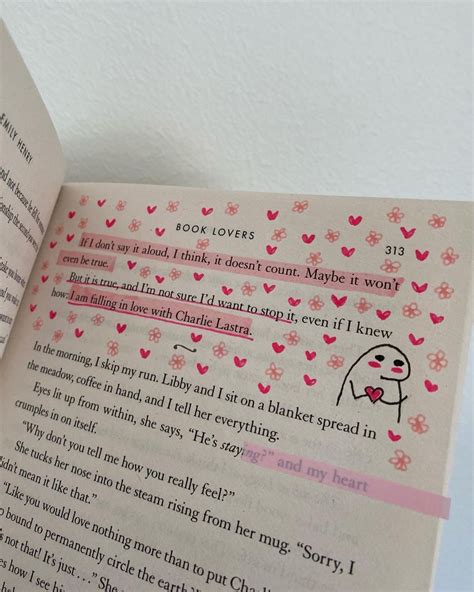 EMILY HENRY
BOOK LOVERS
313
If I don't say it aloud, I think, it doesn't count. Maybe it won't
even be true.
But it is true, and I'm not sure I'd want to stop it, even if I knew
how: I am falling in love with Charlie Lastra.
In the morning, I skip my run. Libby and I sit on a blanket spread in
the meadow, coffee in hand, and I tell her everything.
Eyes lit up from within, she says, "He's staying?" and my heart
crumples in on itself.
"Why don't you tell me how you really feel?"
She tucks her nose into the steam rising from her mug. "Sorry, I
didn't mean it like that."
"Like you would love nothing more than to put Charl
bound to permanently circle the earth
not that! It's just . . ." She
how I see him